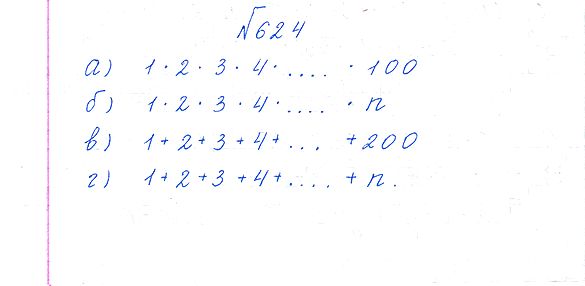 №624
а) 1 · 2 · 3 · 4 · .... · 100
б) 1 · 2 · 3 · 4 · .... · n
в) 1 + 2 + 3 + 4 + ... + 200
г) 1 + 2 + 3 + 4 + .... + n.